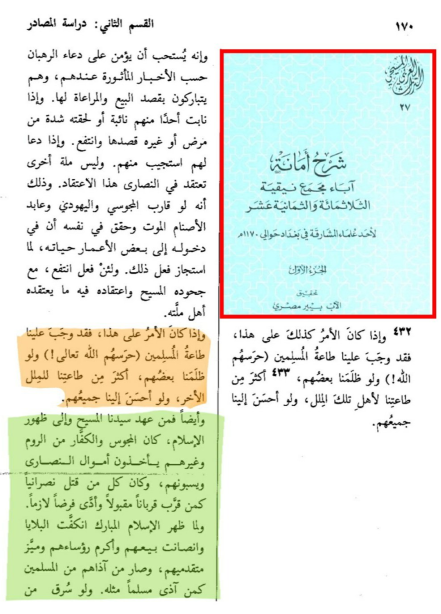 ١٧٠
القسم الثاني: دراسة المصادر
التراث العربي المسيحي
٢٧
شرح أمانة
آباء مجمع نيقية
الثلاثمائة والثمانية عشر
لأحد علماء المشارقة في بغداد حوالي ١١٧٠م
الجزء الأول
تحقيق
الأب بيير مصري
٤٣٢ وإذا كان الأمر كذلك على هذا،
فقد وجَب علينا طاعةُ المُسلِمين (حرَسهُم
الله!) ولو ظلَمَنا بعضُهم، ٤٣٣ أكثرَ مِن
طاعتِنا لأهلِ تلك المِلل، ولو أحسَنَ إلينا
جميعُهم.
وإنه يُستحب أن يؤمن على دعاء الرهبان
حسب الأخبار المأثورة عندهم، وهم
يتباركون بقصد البيع والمراعاة لها. وإذا
نابت أحدًا منهم نائبة أو لحقته شدة من
مرض أو غيره قصدها وانتفع. وإذا دعا
لهم استجيب منهم. وليس ملة أخرى
تعتقد في النصارى هذا الاعتقاد. وذلك
أنه لو قارب المجوسي واليهوديَّ وعابد
الأصنام الموت وحقق في نفسه أن في
دخوله إلى بعض الأعمار حياته، لما
استجاز فعل ذلك. ولئنْ فعل انتفع، مع
جحوده المسيح واعتقاده فيه ما يعتقده
أهل ملَّته.
وإذا كانَ الأمرُ على هذا، فقد وجَبَ علينا
طاعةُ المُسلِمين (حرَسهُم الله تعالى!) ولو
ظلَمَنا بعضُهم، أكثرَ مِن طاعتِنا للمِلل
الأُخر، ولو أحسَنَ إلينا جميعُهم.
وأيضاً فمن عهد سيدنا المسيح وإلى ظهور
الإسلام، كان المجوس والكفَّار من الروم
وغيرهم يأخذون أموال النصارى
ويسبونهم، وكان كل من قتل نصرانياً
كمن قرَّب قرباناً مقبولاً وأدَّى فرضاً لازماً.
ولما ظهر الإسلام المبارك انكفَّت البلايا
وانصانت بيعهم وأكرم رؤساءهم وميَّز
متقدميهم، وصار من آذاهم من المسلمين
كمن آذى مسلماً مثله. ولو سُرق من